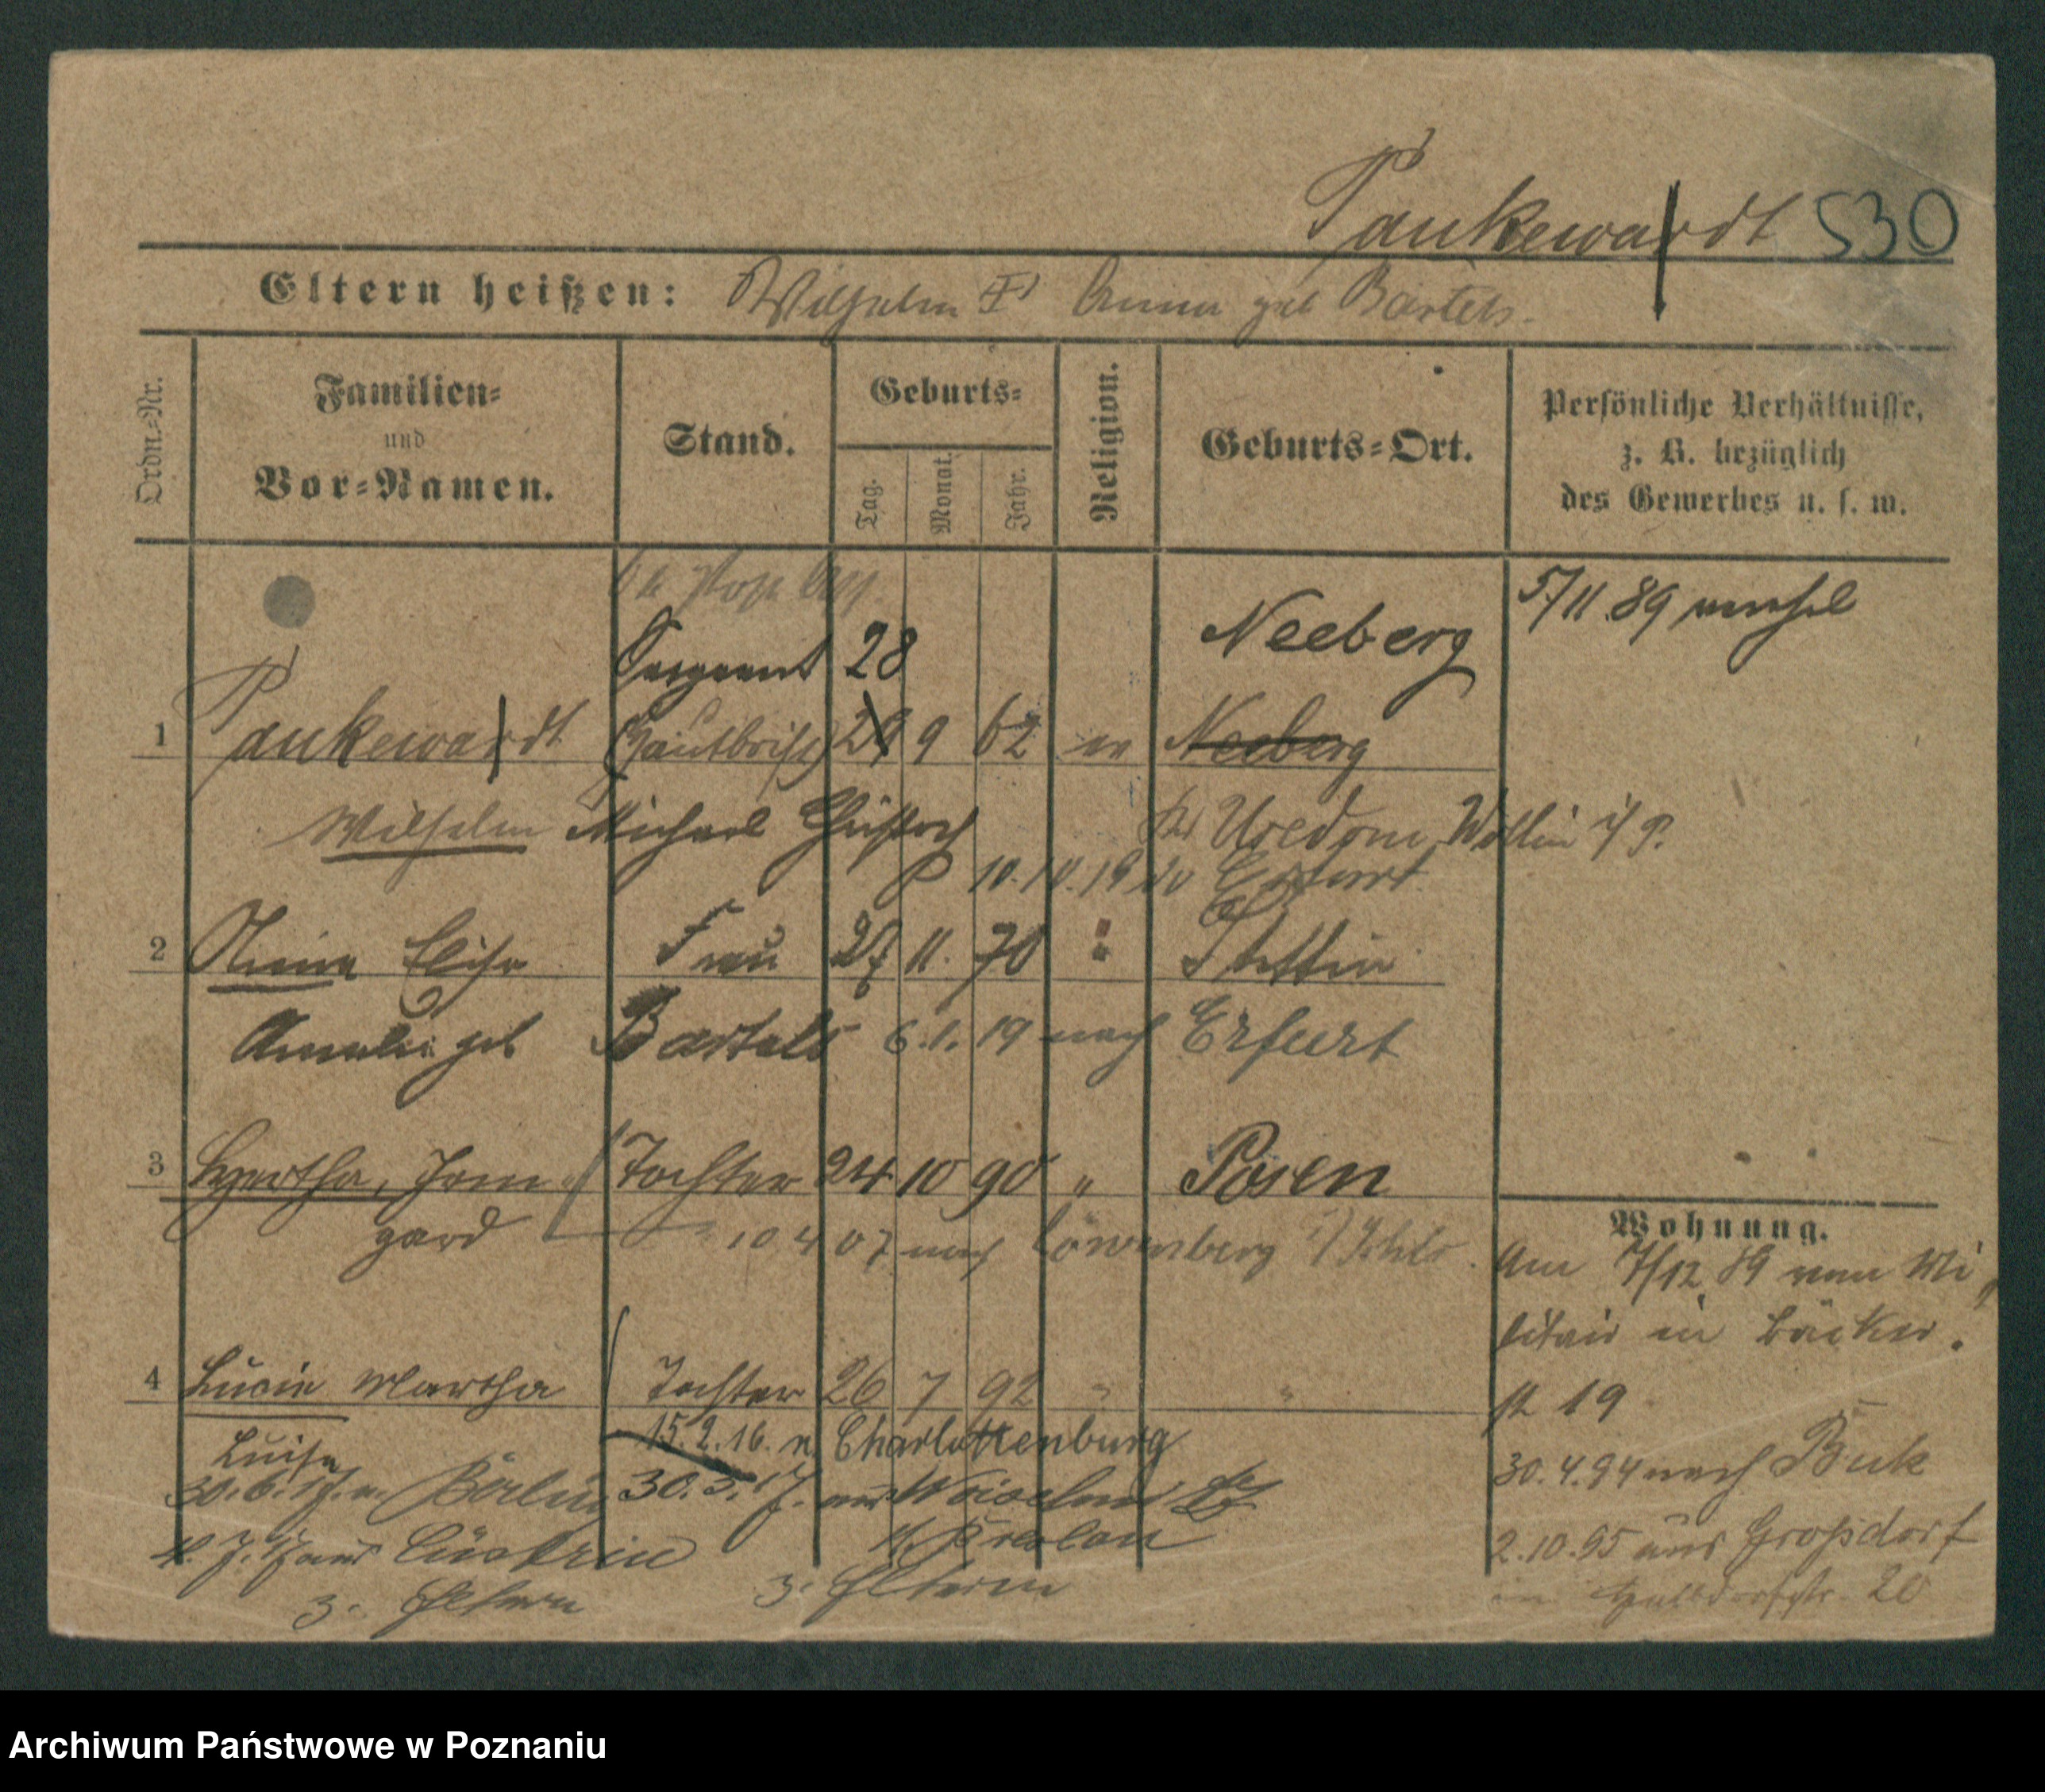 Paukewardt 530
Eltern heißen: Wilhelm Anna geb Bartels.
Ordn.-Nr.
Familien-
und
Vor-Namen.
Stand.
Geburts-
Tag.
Monat.
Jahr.
Religion.
Geburts-Ort.
Persönliche Verhältnisse,
z. B. bezüglich
des Gewerbes u. s. w.
5/11.89
Sergeant 28 Neeberg
1 Paukewardt (Hautboist) 29 9 62 ev Neeberg
Wilhelm Michael Usedom Wollin i/P.
10.10.19 Erfurt
2 Anna Elise Frau 27 11. 70 " Stettin
Amalie geb Bartels 6.1.19 nach Erfurt
3 Hertha, Irm Tochter 24 10 90 " Posen
gard 10 4 07 nach Löwenberg i/Schles.
Wohnung.
Am 7/12 89 vom Mi
litair in Bäcker.
st 19
4 Lucie Martha Tochter 26 7 92 " "
Luise 15.2.16. n. Charlottenburg
30.4.94 nach Buk
30.6.17. n. Berlin 30.3.17. aus
Breslau
2.10.95 aus Großdorf
aus Cüstrin
z. Eltern z. Eltern
20
Archiwum Państwowe w Poznaniu